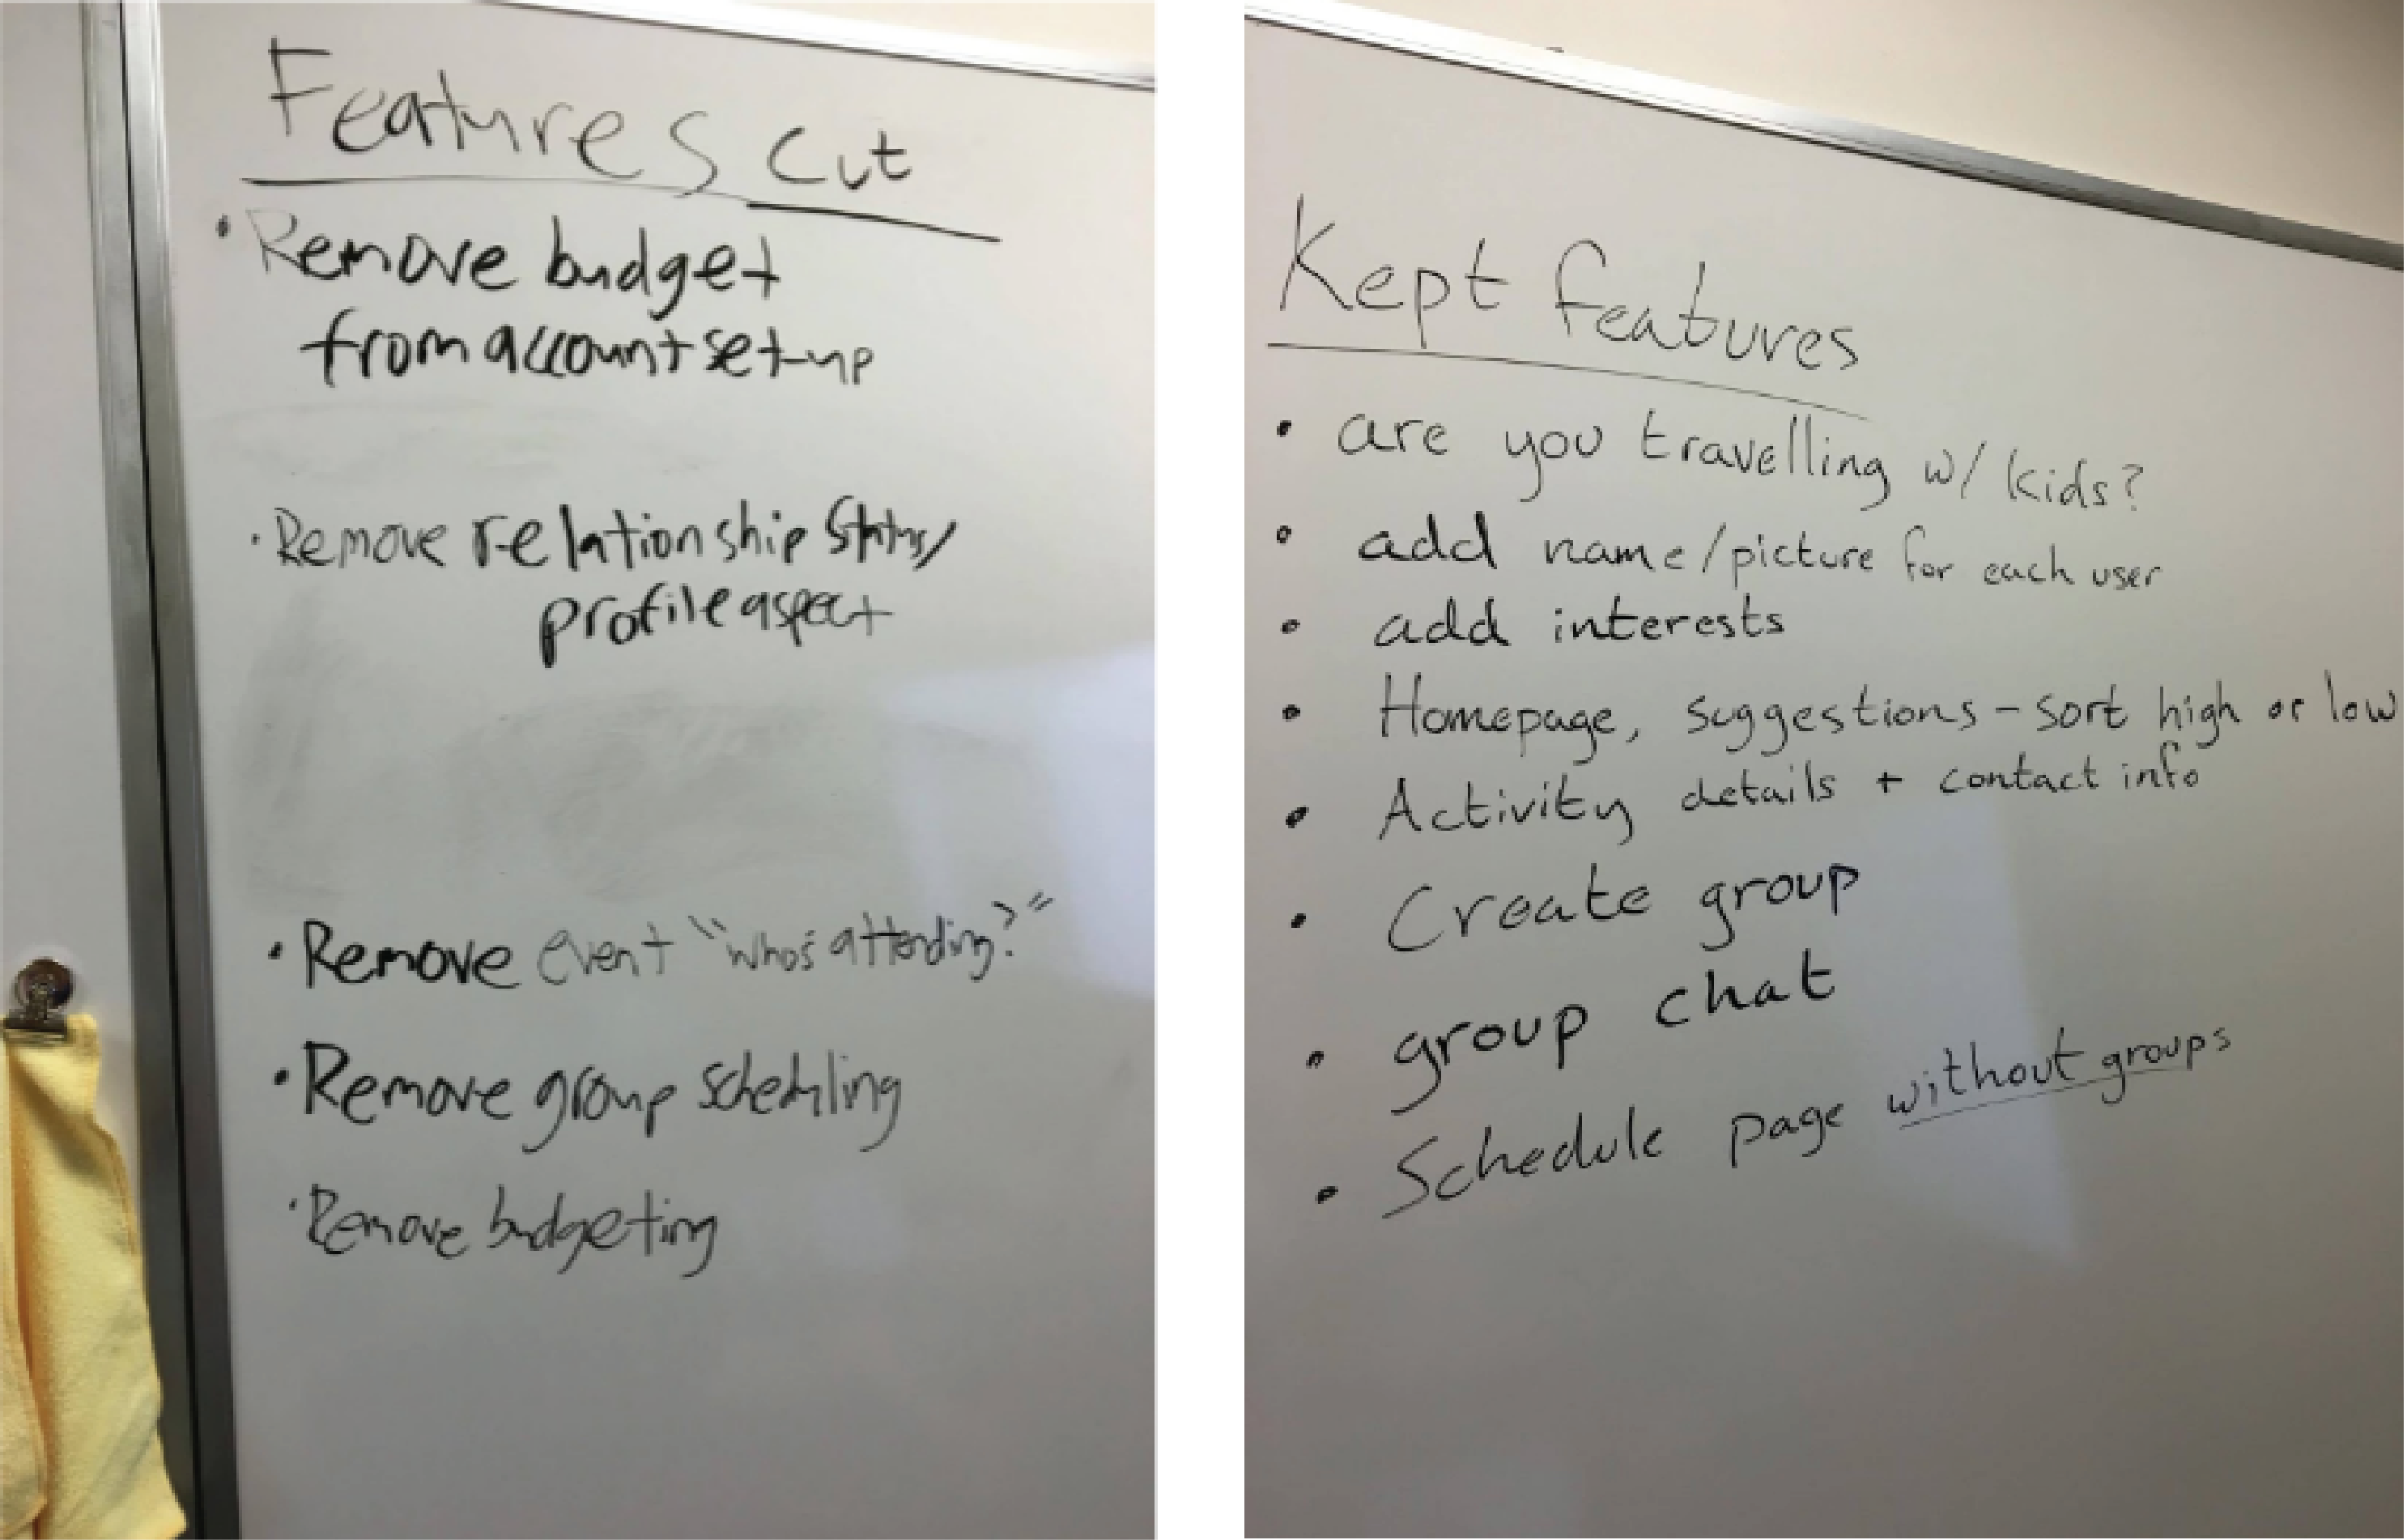 Features Cut
• Remove budget
from account set-up
• Remove relationship Status/
profile aspect
• Remove event "who's attending?"
• Remove group scheduling
• Remove budgeting
Kept features
• are you travelling w/ kids?
• add name/picture for each user
• add interests
• Homepage, suggestions - sort high or low
• Activity details + contact info
• Create group
• group chat
• Schedule page without groups